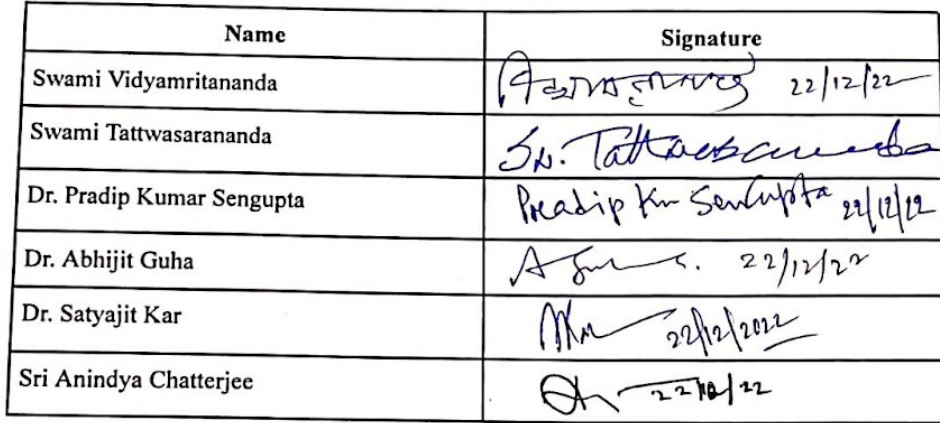 Name Signature
Swami Vidyamritananda 22/12/22
Swami Tattwasarananda Sw. Tattwasarananda
Dr. Pradip Kumar Sengupta Pradip Kr Sengupta 22/12/22
Dr. Abhijit Guha 22/12/22
Dr. Satyajit Kar 22/12/2022
Sri Anindya Chatterjee 22/12/22